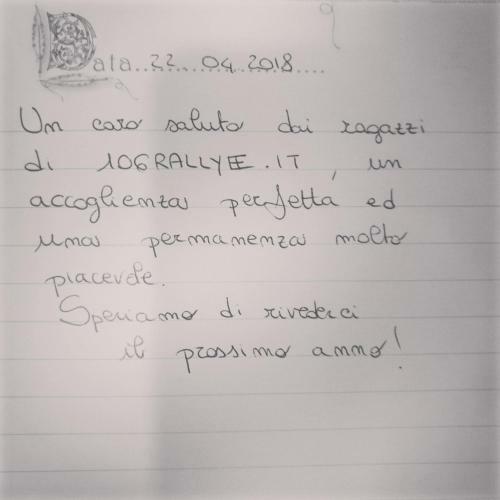 Data...22...04.2018....
Un caro saluto dai ragazzi
di 106RALLYE.IT, un
accoglienza perfetta ed
una permanenza molto
piacevole.
Speriamo di rivederci
il prossimo anno!